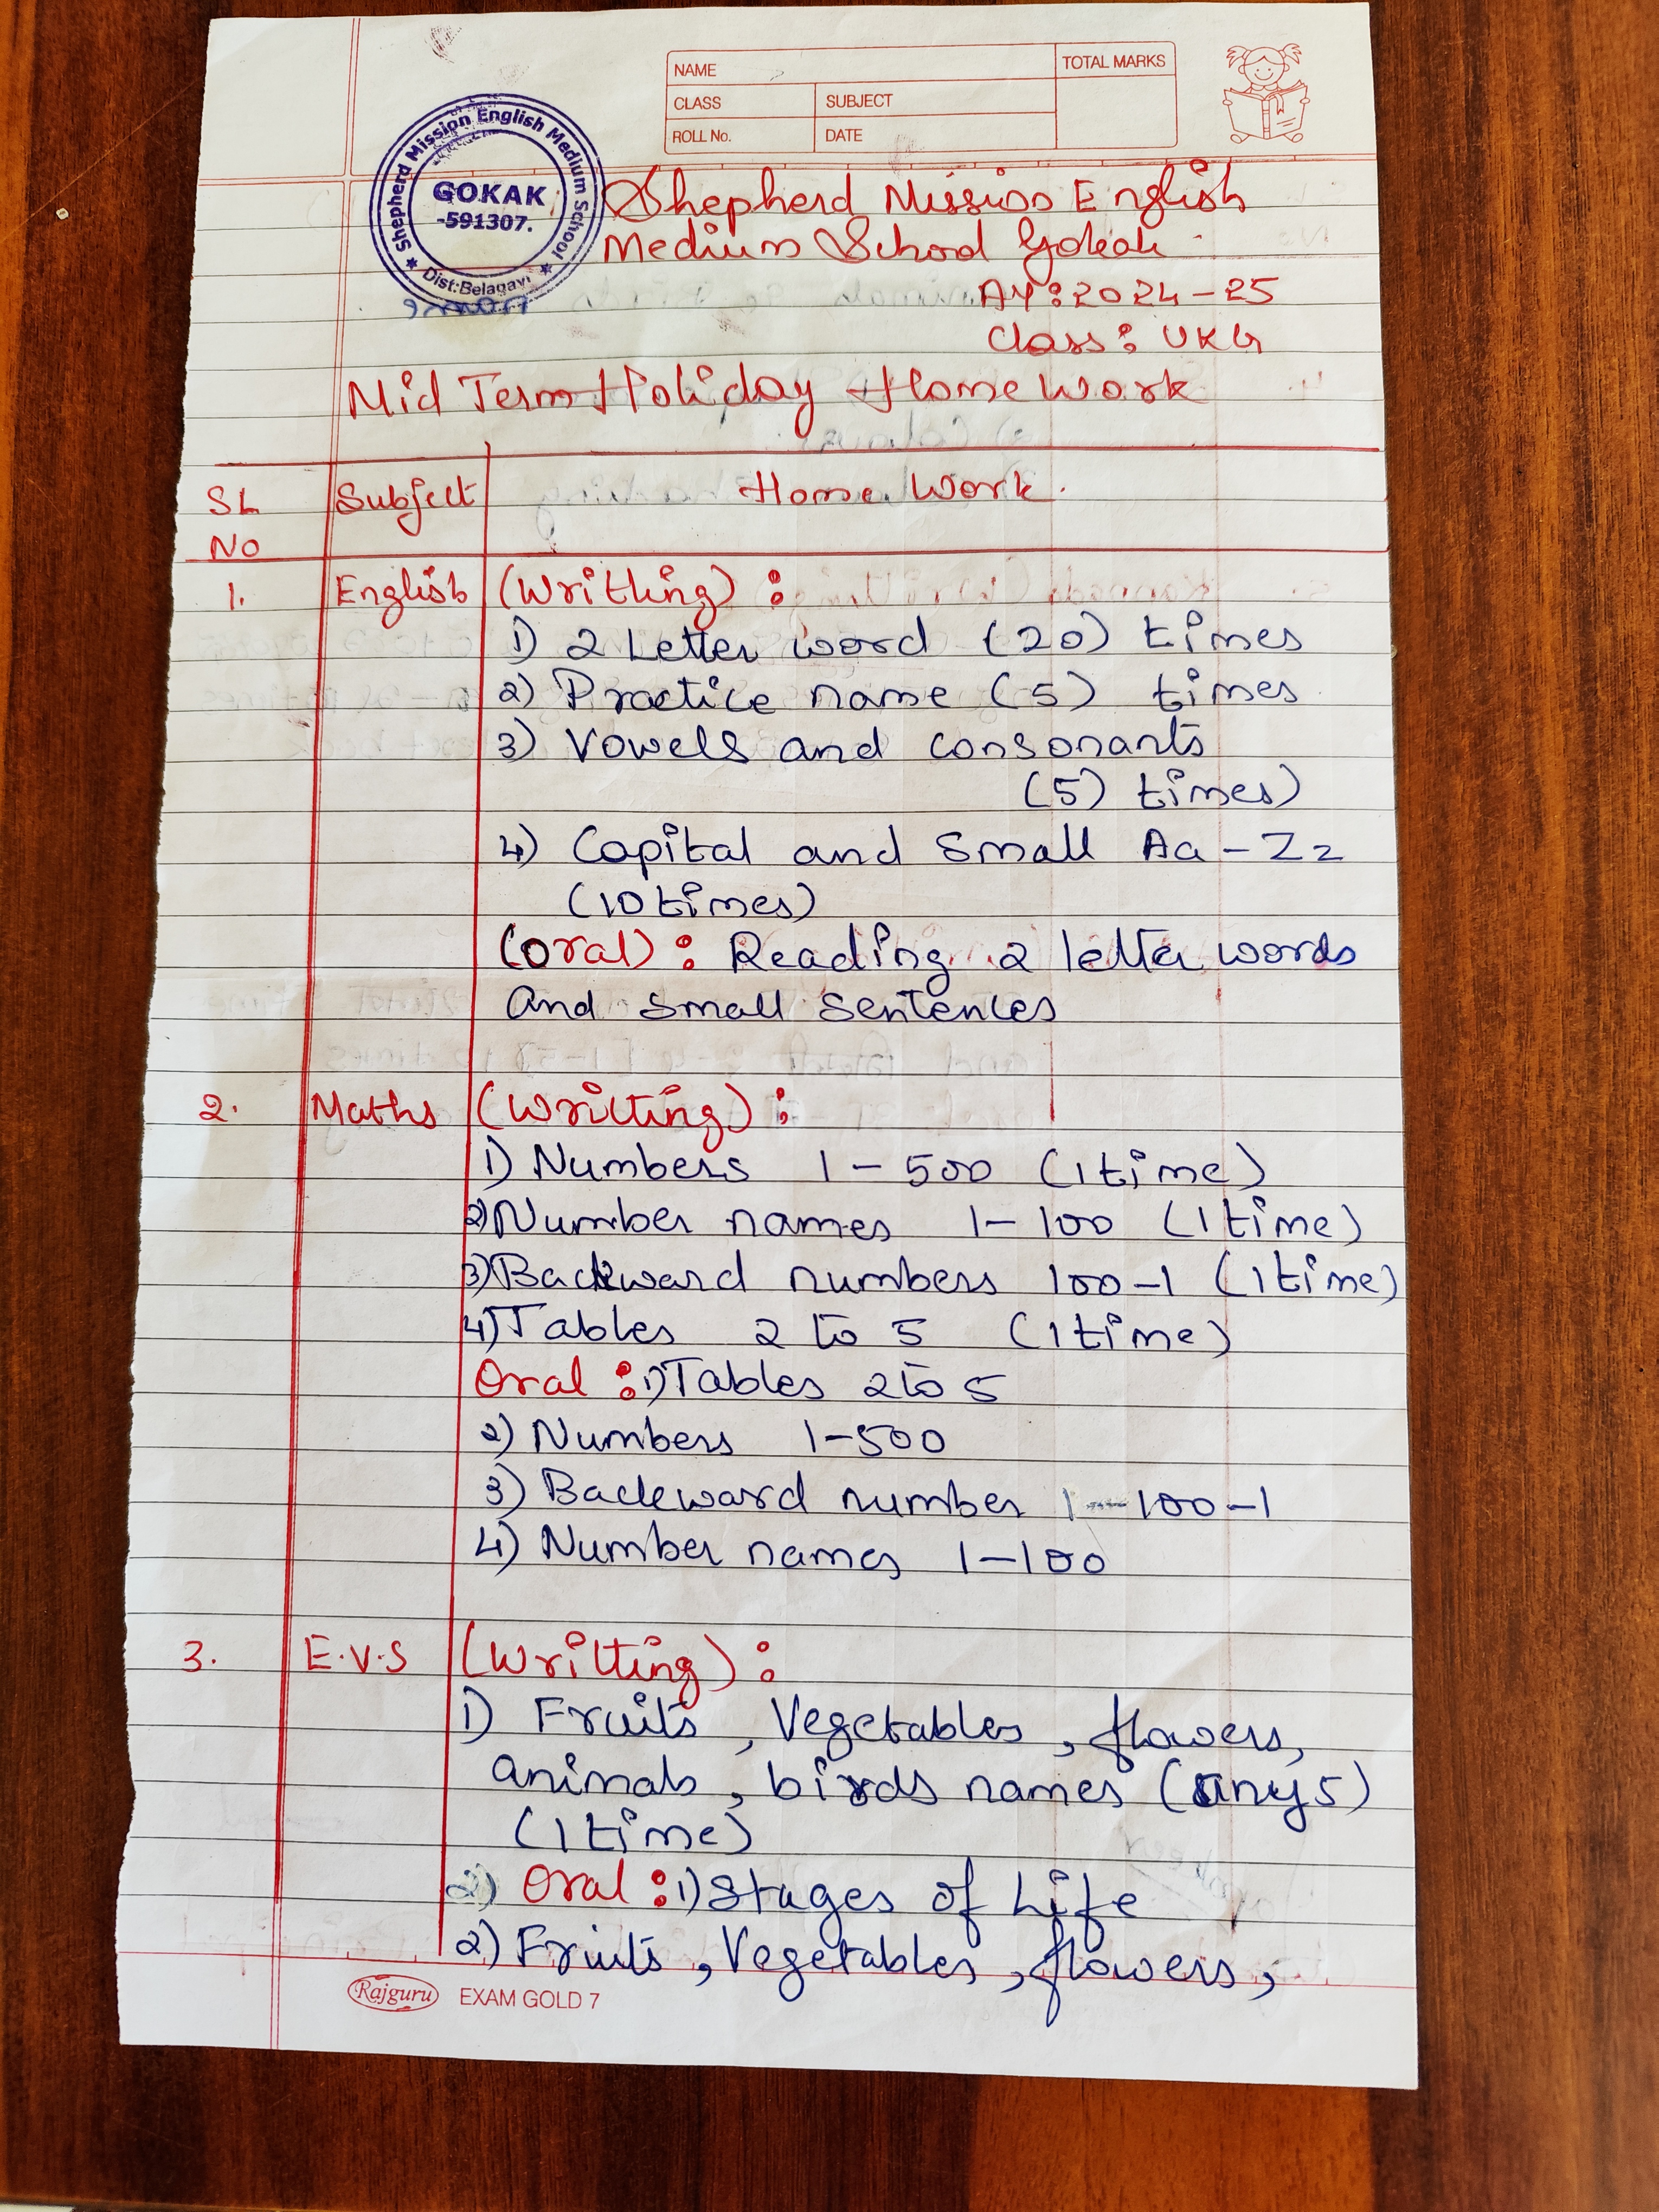 NAME
TOTAL MARKS
CLASS
SUBJECT
ROLL No.
DATE
Shepherd Mission English Medium School
GOKAK
-591307.
Dist:Belagavi
Shepherd Mission English
Medium School Gokak
AY: 2024-25
Class: UKG
Mid Term Holiday Home Work
SL No Subject Home Work.
1. English (Writting):
1) 2 Letter word (20) times
2) Practice name (5) times
3) Vowels and consonants
(5) times)
4) Capital and Small Aa-Zz
(10 times)
(Oral): Reading 2 letter words
and small sentences
2. Maths (Writting):
1) Numbers 1-500 (1 time)
2) Number names 1-100 (1 time)
3) Backward numbers 100-1 (1 time)
4) Tables 2 to 5 (1 time)
Oral: 1) Tables 2 to 5
2) Numbers 1-500
3) Backward number 1-100-1
4) Number names 1-100
3. E.V.S (Writting):
1) Fruits, Vegetables, flowers,
animals, birds names (any 5)
(1 time)
2) Oral: 1) Stages of Life
2) Fruits, Vegetables, flowers,
Rajguru EXAM GOLD 7